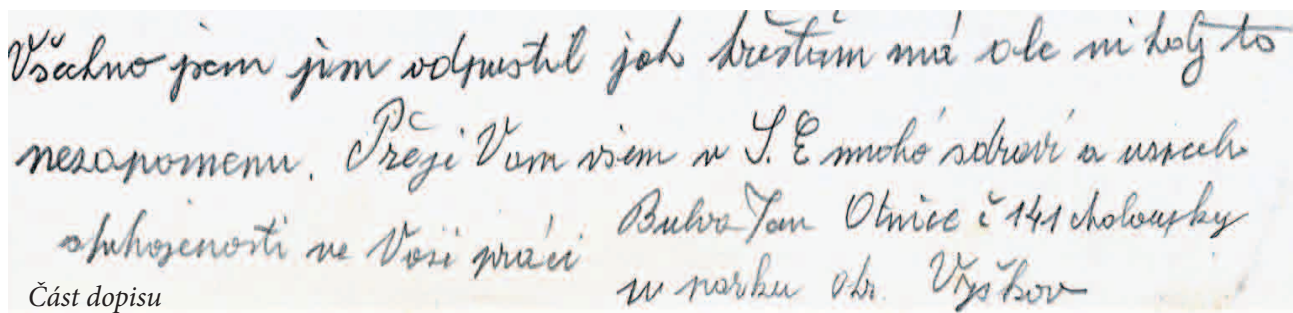 Všechno jsem jim odpustil jak křesťan má ale nikdy to
nezapomenu. Přeji Vam všem v S. E mnohó zdraví a usěch
spokojenosti ve Vaší práci
Bulva Jan Otnice č 141 chaloupky
u parku Okr. Vyškov
Část dopisu